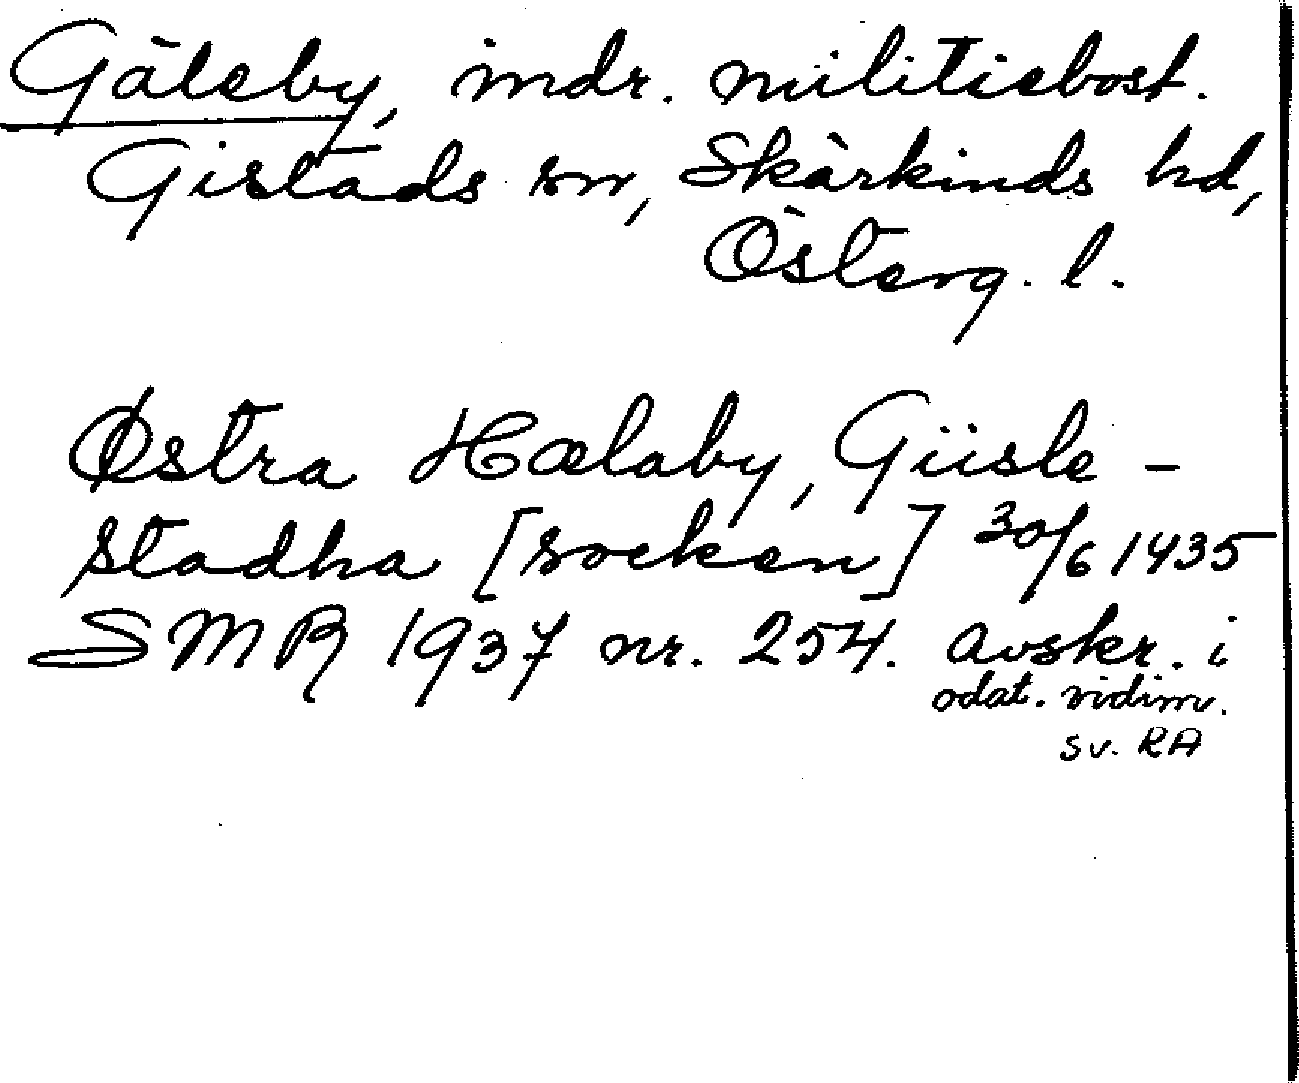 Gäleby, indr. militiebost.
Gistads sn, Skärkinds hd,
Österg. l.
Østra Hælaby, Giisle-
stadha [socken] 30/6 1435
SMR 1937 nr. 254. Avskr. i
odat. vidim.
sv. RA